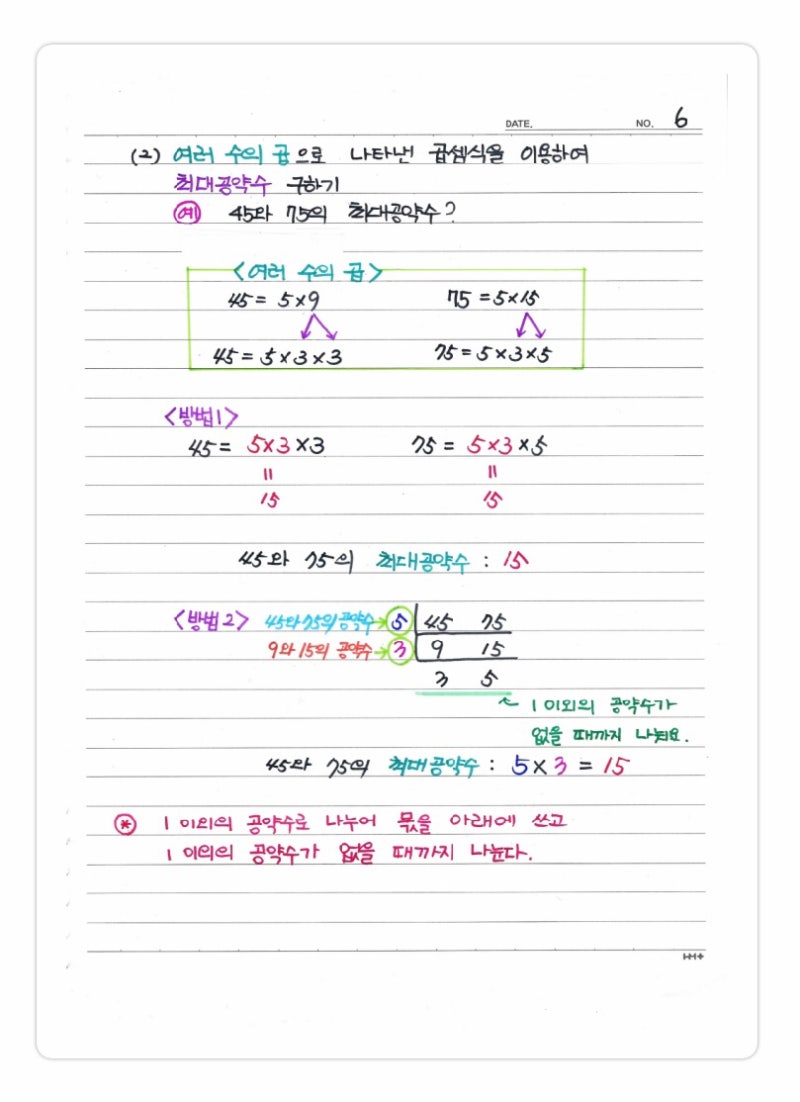 DATE. NO. 6
(2) 여러 수의 곱으로 나타낸 곱셈식을 이용하여
최대공약수 구하기
예 45와 75의 최대공약수?
<여러 수의 곱>
45 = 5×9 75 = 5×15
45 = 5×3×3 75 = 5×3×5
<방법1>
45 = 5×3×3 75 = 5×3×5
= =
15 15
45와 75의 최대공약수 : 15
<방법2> 45와 75의 공약수→ 5 45 75
9와 15의 공약수→ 3 9 15
3 5
1 이외의 공약수가
없을 때까지 나눠요.
45와 75의 최대공약수 : 5×3 = 15
* 1 이외의 공약수로 나누어 몫을 아래에 쓰고
1 이외의 공약수가 없을 때까지 나눈다.